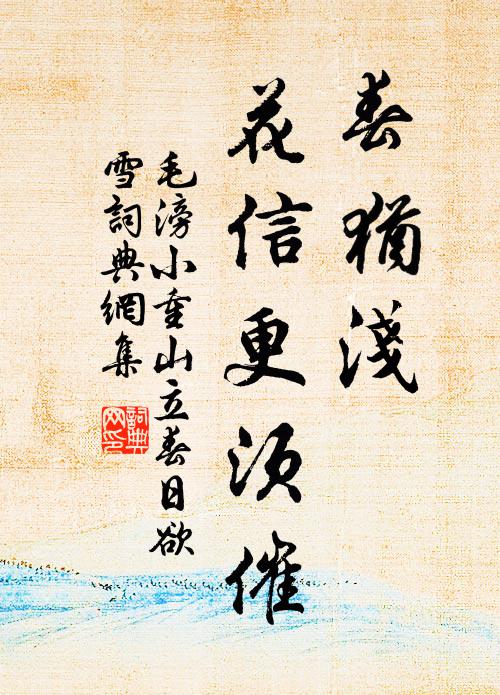 春猶淺
花信更須催
毛滂小重山立春日欲
雪詞典網集
詞典
网印